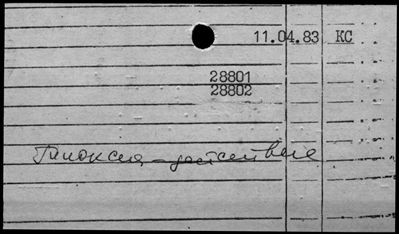 11.04.83 КС
28801
28802
Гипоксия – действие